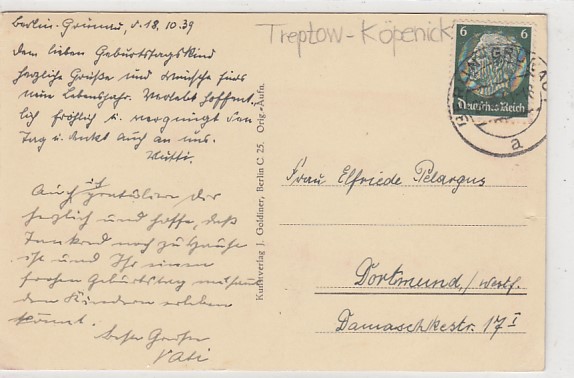 Berlin-Grünau, d. 18.10.39
Dem lieben Geburtstagskind
herzliche Grüße und Wünsche fürs
neue Lebensjahr. Verlebt hoffent-
lich fröhlich u. vergnügt den
Tag u. denket auch an uns.
Mutti.
Auch ich gratuliere Dir
herzlich und hoffe, daß
noch zu Hause
ist und Ihr einen
frohen Geburtstag mitsamt
den Kindern erleben
könnt.
Beste Grüße
Vati
Kunstverlag J. Goldiner, Berlin C 25. Orig.-Aufn.
Treptow-Köpenick
6 6
Deutsches Reich
a
Frau Elfriede Pelargus
Dortmund,/Westf.
Damaschkestr. 17 I